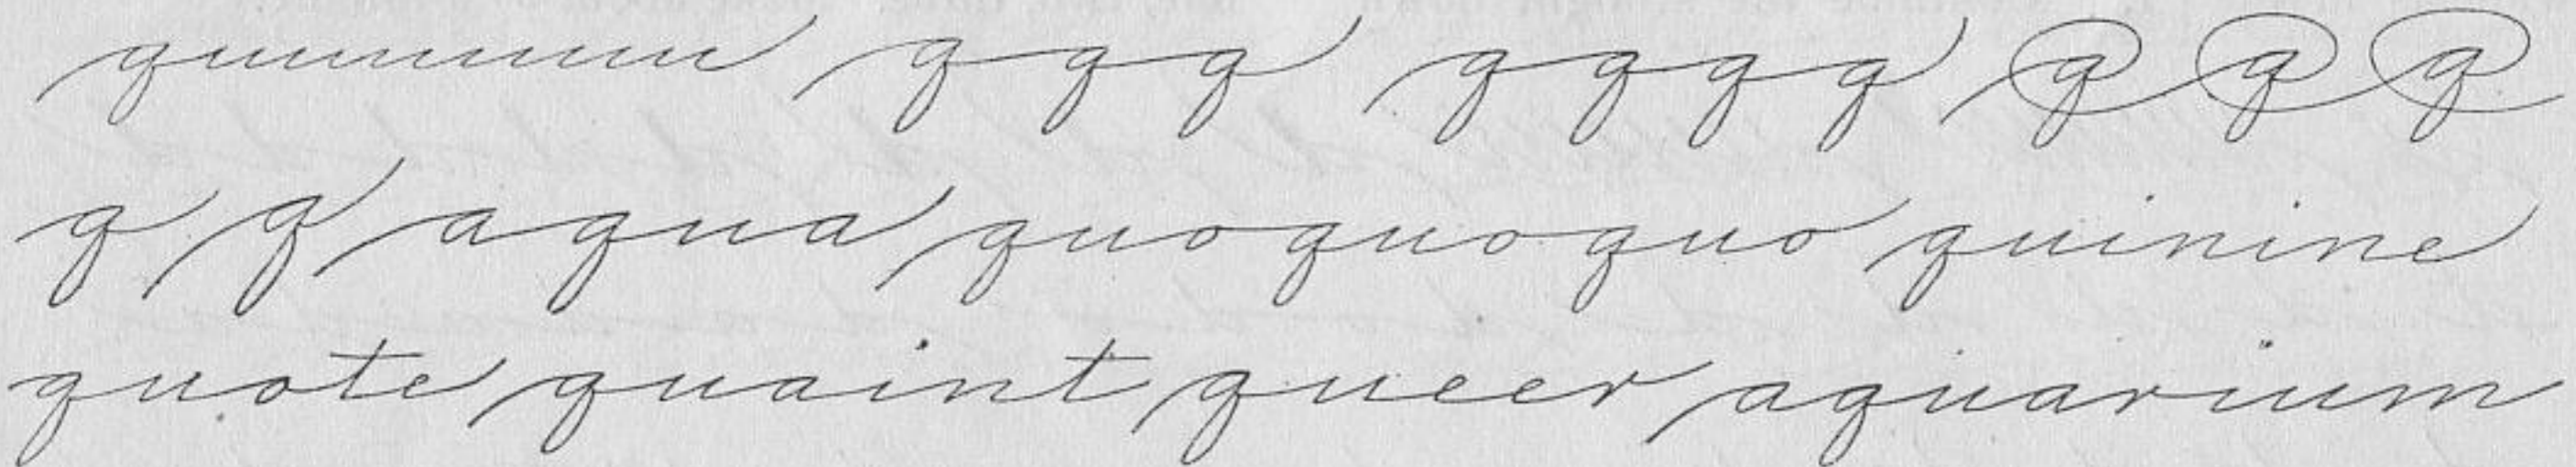 qqq qqqq q q q
q q aqua quoquoquo quinine
quote quaint queer aquarium